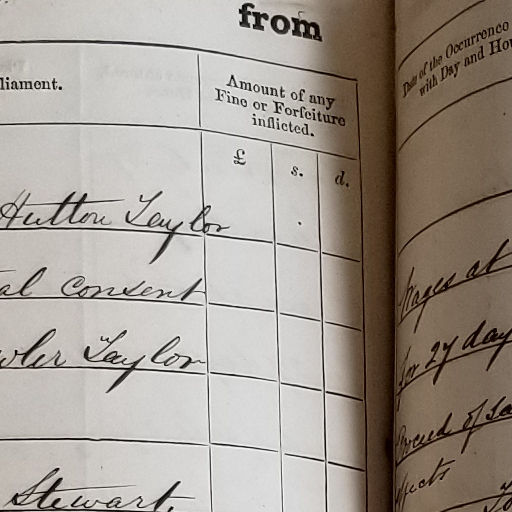 from
liament.
Amount of any
Fine or Forfeiture
inflicted.
£ s. d.
Hutton Taylor
al consent
wler Taylor
Stewart.
Date of the Occurrence
with Day and Hou
Wages at
for 27 day
Proceed of Sa
ffects